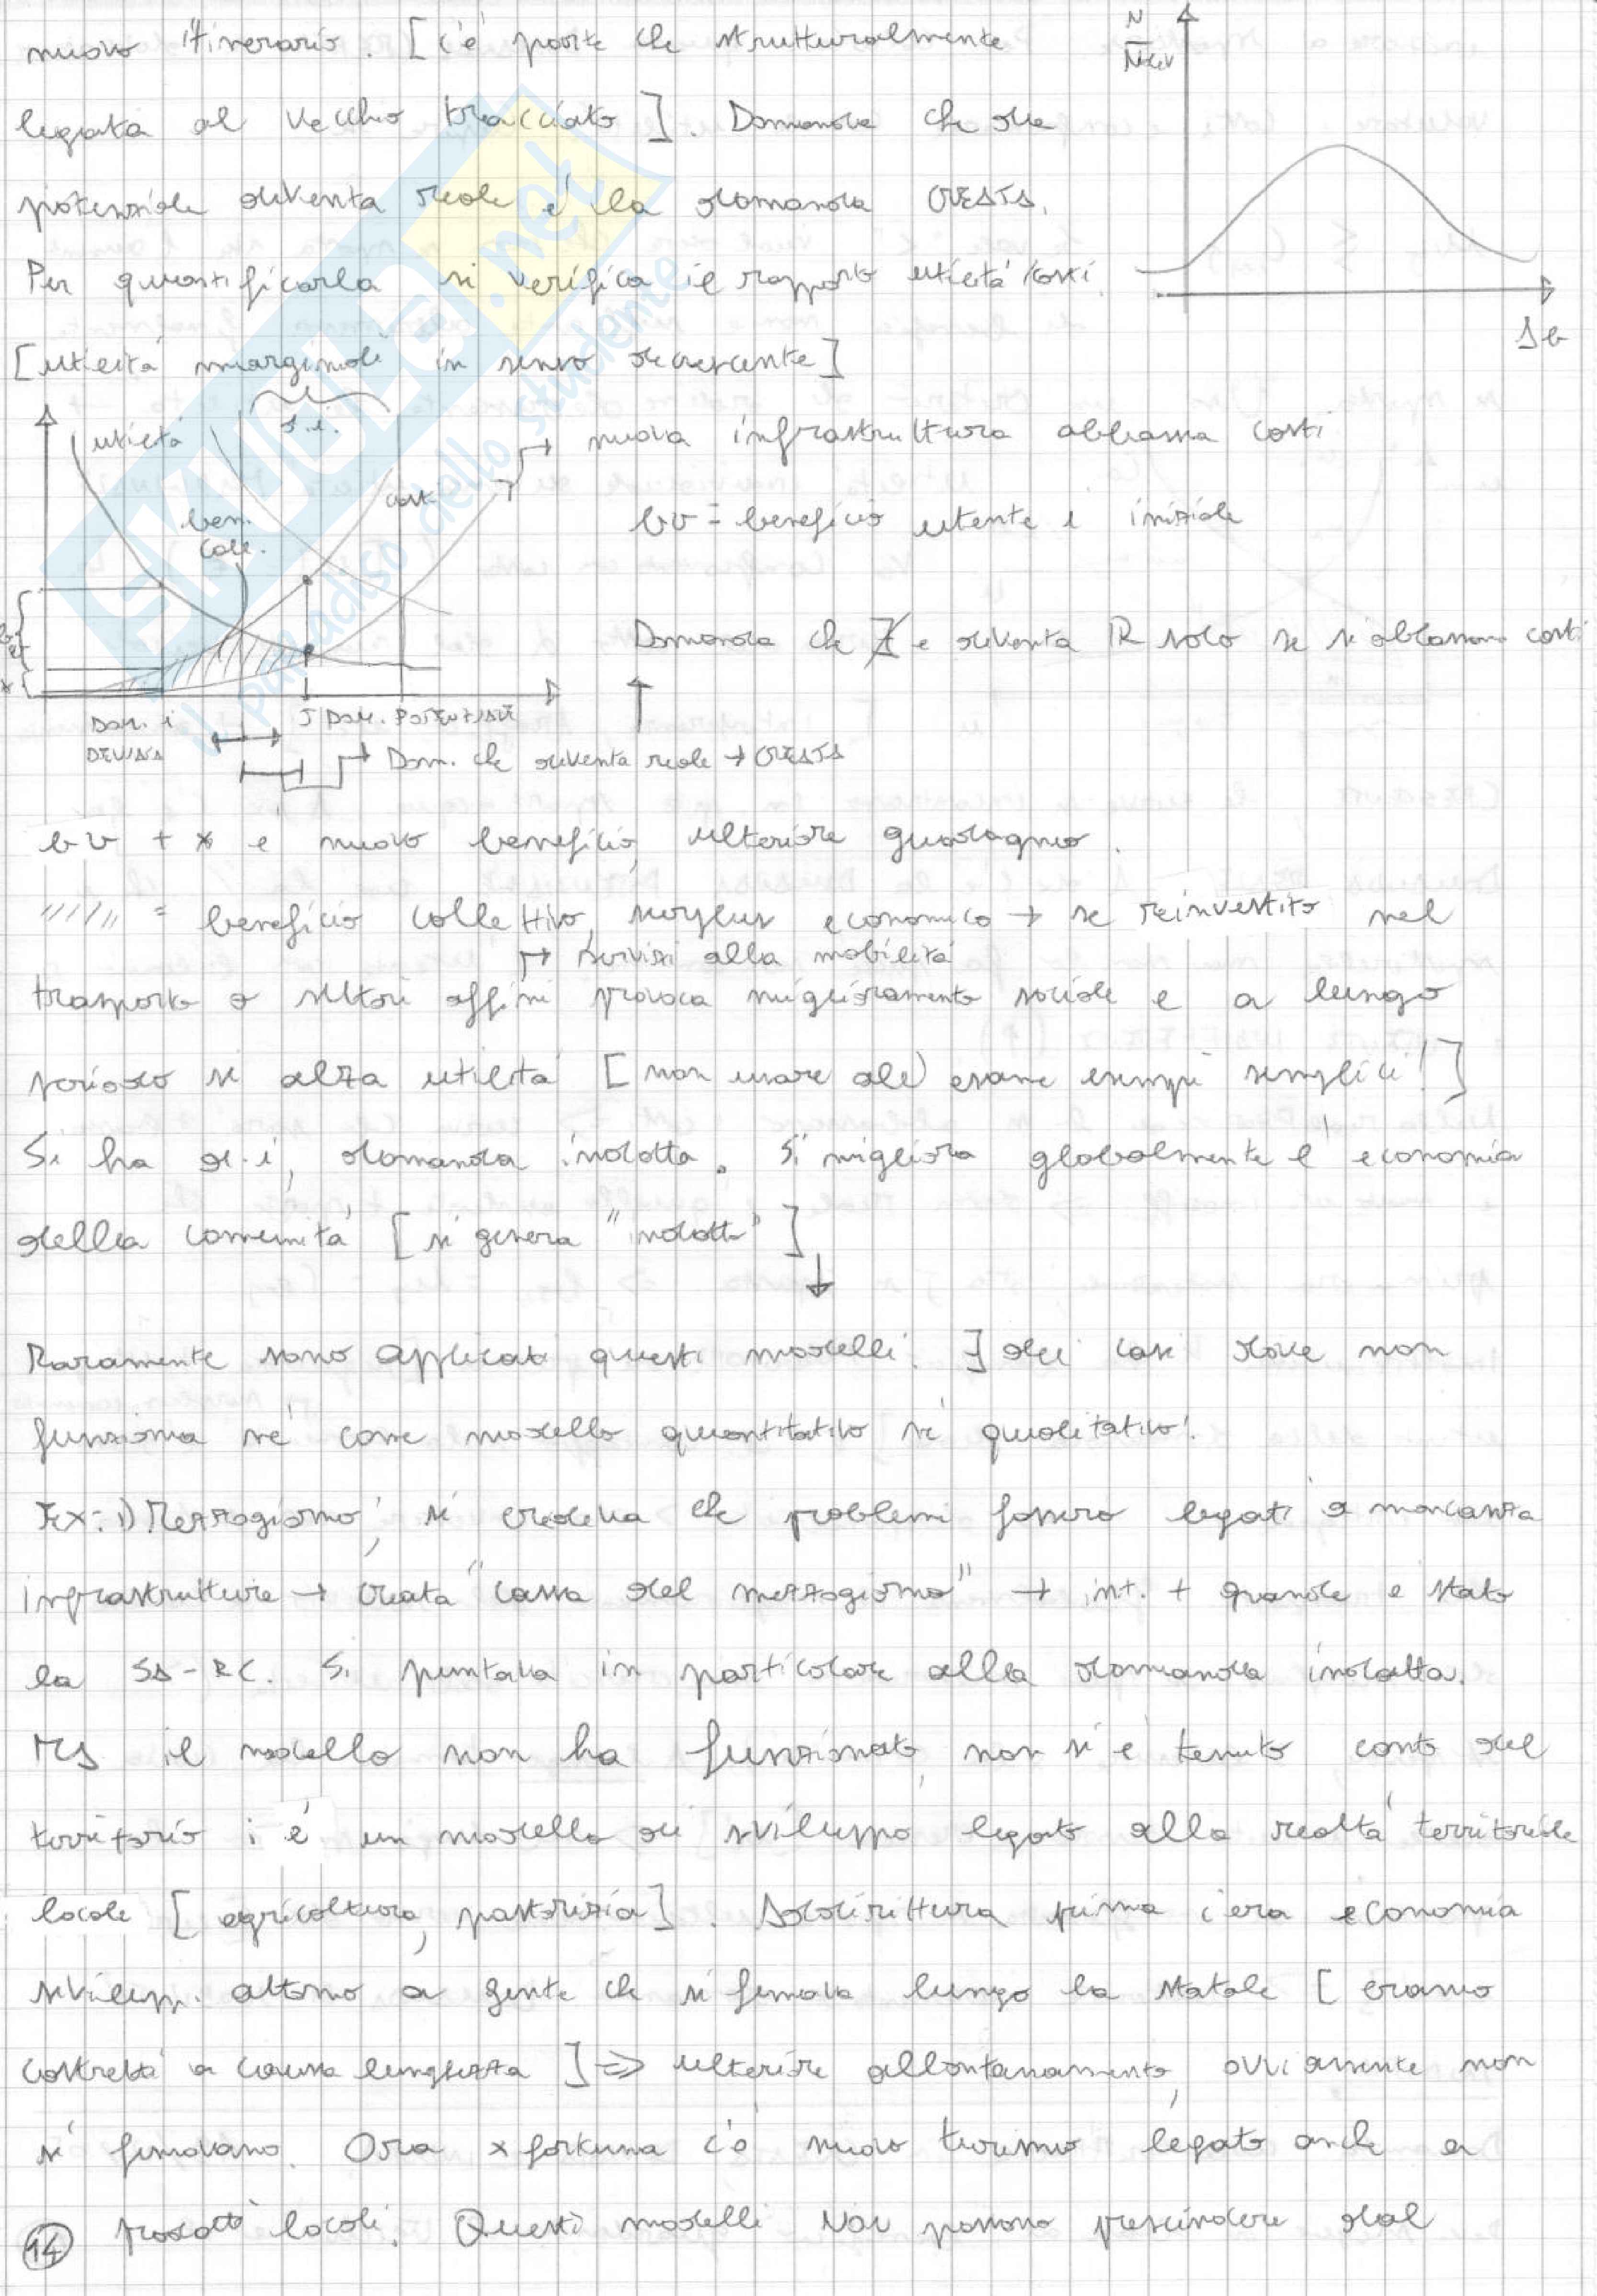 nuovo itinerario. [c'è parte che strutturalmente
legata al vecchio tracciato]. Domanda che da
potenziale diventa reale è la domanda CREATA.
Per quantificarla si verifica il rapporto utilità/costi.
[utilità marginali in senso decrescente]
N
Δb
utilità
d.i.
costi
ben.
coll.
→ nuova infrastruttura abbassa costi
bv = beneficio utente i iniziale
Domanda che ∄ e diventa R solo se si abbassano costi
*
DOM. i
DEVIATA
J DOM. POTENZIALE
→ Dom. che diventa reale → CREATA
bv + * è nuovo beneficio, ulteriore guadagno.
///// = beneficio collettivo, surplus economico → se reinvestito nel
↦ servizi alla mobilità
trasporto o settori affini provoca miglioramento sociale e a lungo
periodo si alza utilità [non usare all'esame esempi semplici!]
Si ha d.i, domanda indotta. Si migliora globalmente l'economia
della comunità [si genera "indotto"]
↓
Raramente sono applicati questi modelli. ∃ dei casi dove non
funziona né come modello quantitativo né qualitativo!
Ex: 1) Mezzogiorno, si credeva che problemi fossero legati a mancanza
infrastrutture → creata "cassa del mezzogiorno" → int. + grande è stato
la SA-RC. Si puntava in particolare alla domanda indotta.
MA il modello non ha funzionato, non si è tenuto conto del
territorio; è un modello di sviluppo legato alla realtà territoriale
locale [agricoltura, pastorizia]. Addirittura prima c'era economia
svilupp. attorno a gente che si fermava lungo la statale [erano
costretti a causa lunghezza] ⇒ ulteriore allontanamento, ovviamente non
si fermavano. Ora x fortuna c'è nuovo turismo legato anche a
prodotti locali. Questi modelli NON possono prescindere dal
14
SKUOLA.net
il paradiso dello studente